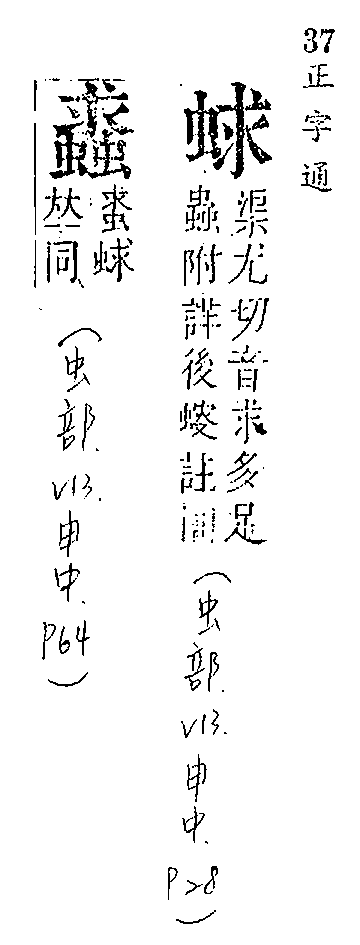 37正字通
蛷
渠尤切音求多足
蟲附詳後螋註
(虫部.V13.申中.P28)
蛷
𠀤同
(虫部.V13.申中.P64)